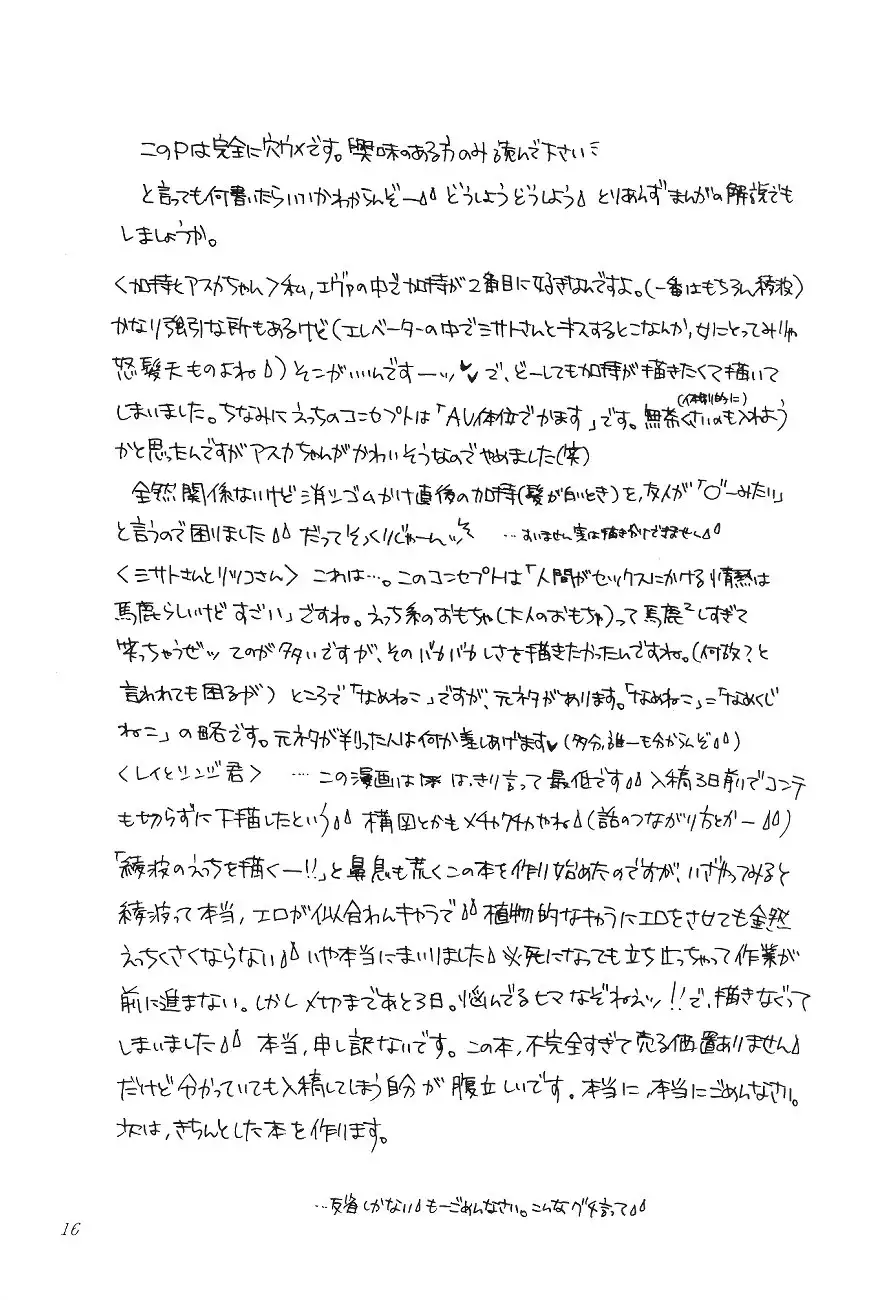 このPは完全に穴ウメです。興味のある方のみ読んで下さい
と言っても何書いたらいいかわからんぞー どうしようどうしよう とりあえずまんがの解説でも
しましょうか。
〈加持とアスカちゃん〉私,エヴァの中で加持が2番目に好きなんですよ。(一番はもちろん綾波)
かなり強引な所もあるけど(エレベーターの中でミサトさんとキスするとこなんか,女にとってみりゃ
怒髪天ものよね)そこがいいんですーッ♥で、どーしても加持が描きたくて描いて
しまいました。ちなみにえっちのコンセプトは「AV体位でかます」です。無茶くさいのも(体制的に)入れよう
かと思ったんですがアスカちゃんがかわいそうなのでやめました(笑)
全然関係ないけど消しゴムかけ直後の加持(髪が白いとき)を,友人が「○"ーみたい」
と言うので困りました だってそっくりじゃーんッ …すいません実は描き分けできません
〈ミサトさんとリツコさん〉 これは…。このコンセプトは「人間がセックスにかける情熱は
馬鹿らしいけどすごい」ですね。えっち系のおもちゃ(大人のおもちゃ)って馬鹿²しすぎて
笑っちゃうぜッ てのが多いですが、そのバカバカしさを描きたかったんですね。(何故?と
言われても困るが) ところで「なめねこ」ですが、元ネタがあります。「なめねこ」=「なめくじ
ねこ」の略です。元ネタが判った人は何か差しあげます♥(多分,誰一も分からんぞ)
〈レイとシンジ君〉 …この漫画は はっきり言って最低です 入稿3日前でコンテ
も切らずに下描したという 構図とかもメチャクチャやね(話のつながり方とかー)
「綾波のえっちを描くー!!」と鼻息も荒くこの本を作り始めたのですが、いざやってみると
綾波って本当,エロが似合わんキャラで 植物的なキャラにエロをさせても全然
えっちくさくならない いや本当にまいりました 必死になっても立ち止っちゃって作業が
前に進まない。しかし〆切まであと3日。悩んでるヒマなぞねえッ!!で,描きなぐって
しまいました 本当,申し訳ないです。この本,不完全すぎて売る価置ありません
だけど分かっていても入稿してしまう自分が腹立しいです。本当に,本当にごめんなさい。
次は,きちんとした本を作ります。
…反省しかない もーごめんなさい。こんなグチ言って
16